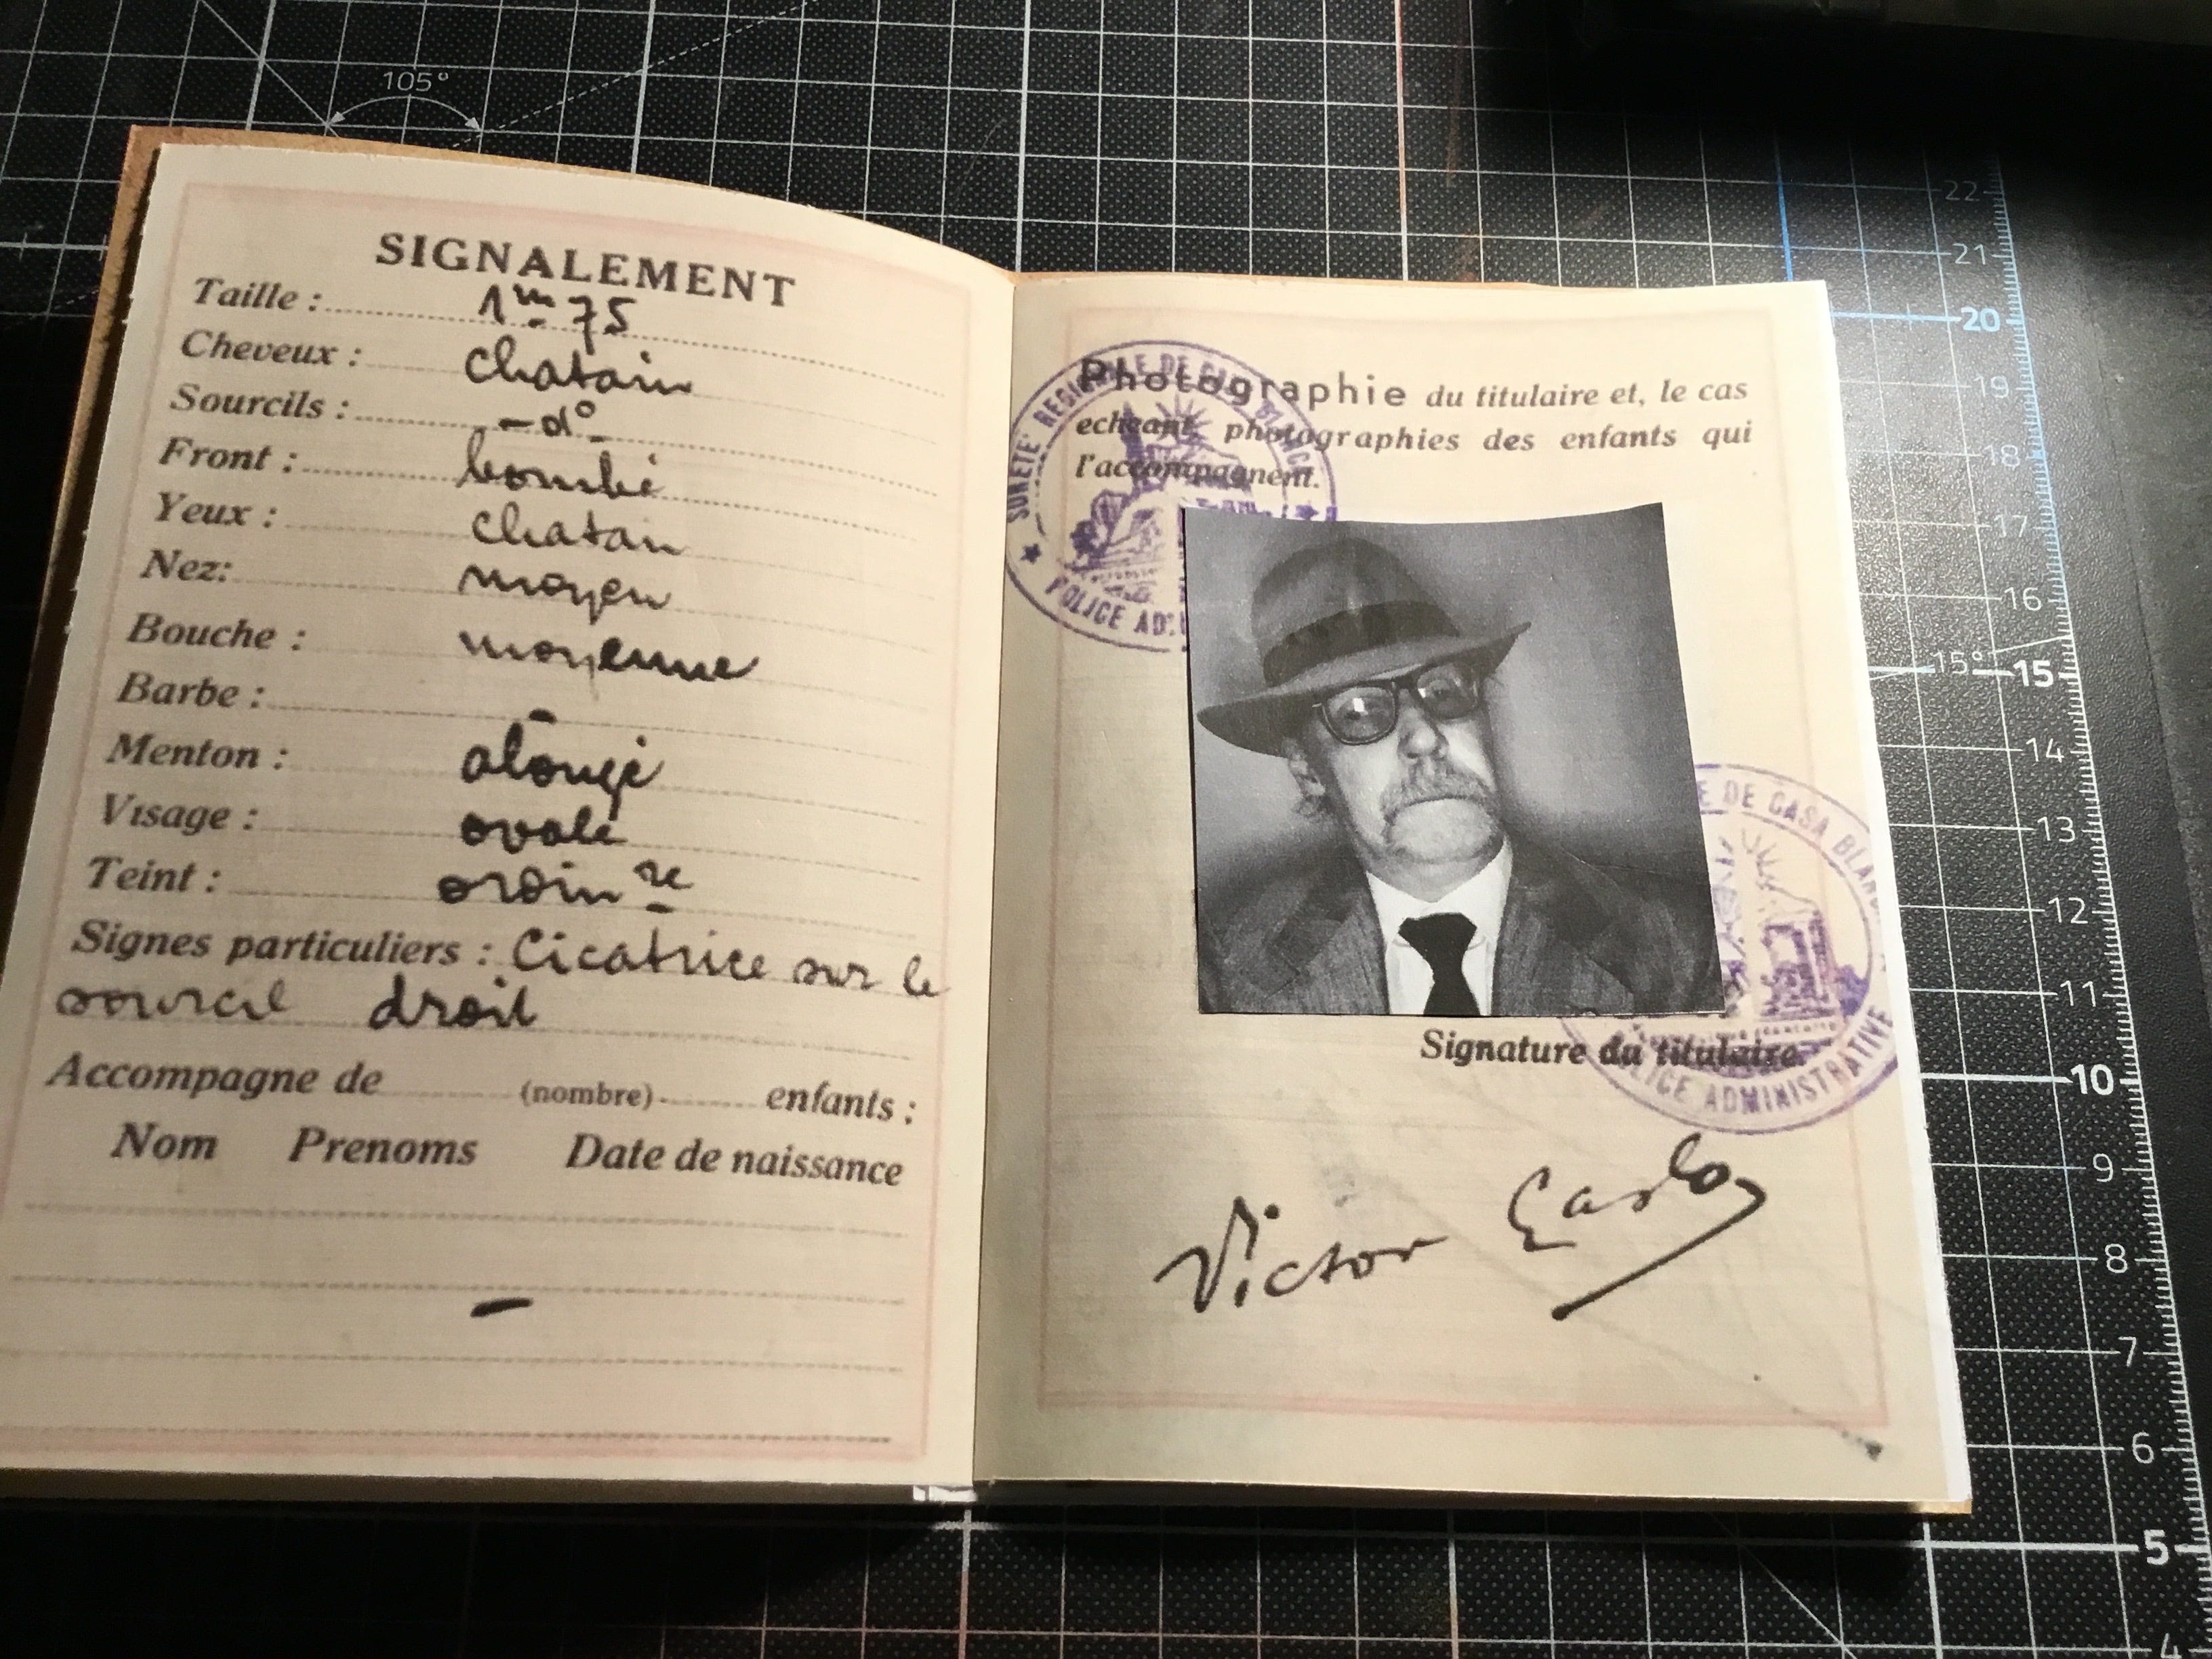 SIGNALEMENT
Taille : 1m 75
Cheveux : chatain
Sourcils : - do -
Front : bombé
Yeux : chatain
Nez: moyen
Bouche : moyenne
Barbe : -
Menton : alongé
Visage : ovale
Teint : ordinre
Signes particuliers : Cicatrice sur le
sourcil droit
Accompagne de (nombre) enfants :
Nom Prenoms Date de naissance
-
Photographie du titulaire et, le cas
echeant, photographies des enfants qui
l'accompagnent.
SURETÉ RÉGIONALE DE CASA BLANCA
POLICE AD
E DE CASA BLAN
Signature du titulaire.
LICE ADMINISTRATIVE
Victor
105°
22
21
20
19
18
17
16
15° 15
14
13
12
11
10
9
8
7
6
5
4